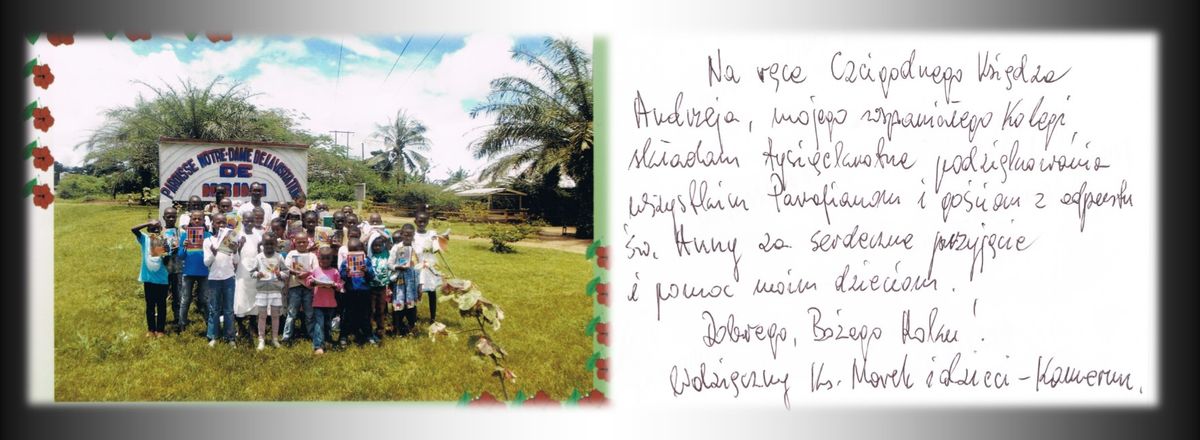 PAROISSE NOTRE-DAME DE LA VISITATION
DE
Na ręce Czcigodnego Księdza
Andrzeja, mojego wspaniałego Kolegi,
składam tysiąckrotne podziękowania
wszystkim Parafianom i gościom z odpustu
św. Anny za serdeczne przyjęcie
i pomoc moim dzieciom.
Dobrego, Bożego Roku!
Wdzięczny Ks. Marek i dzieci - Kamerun.